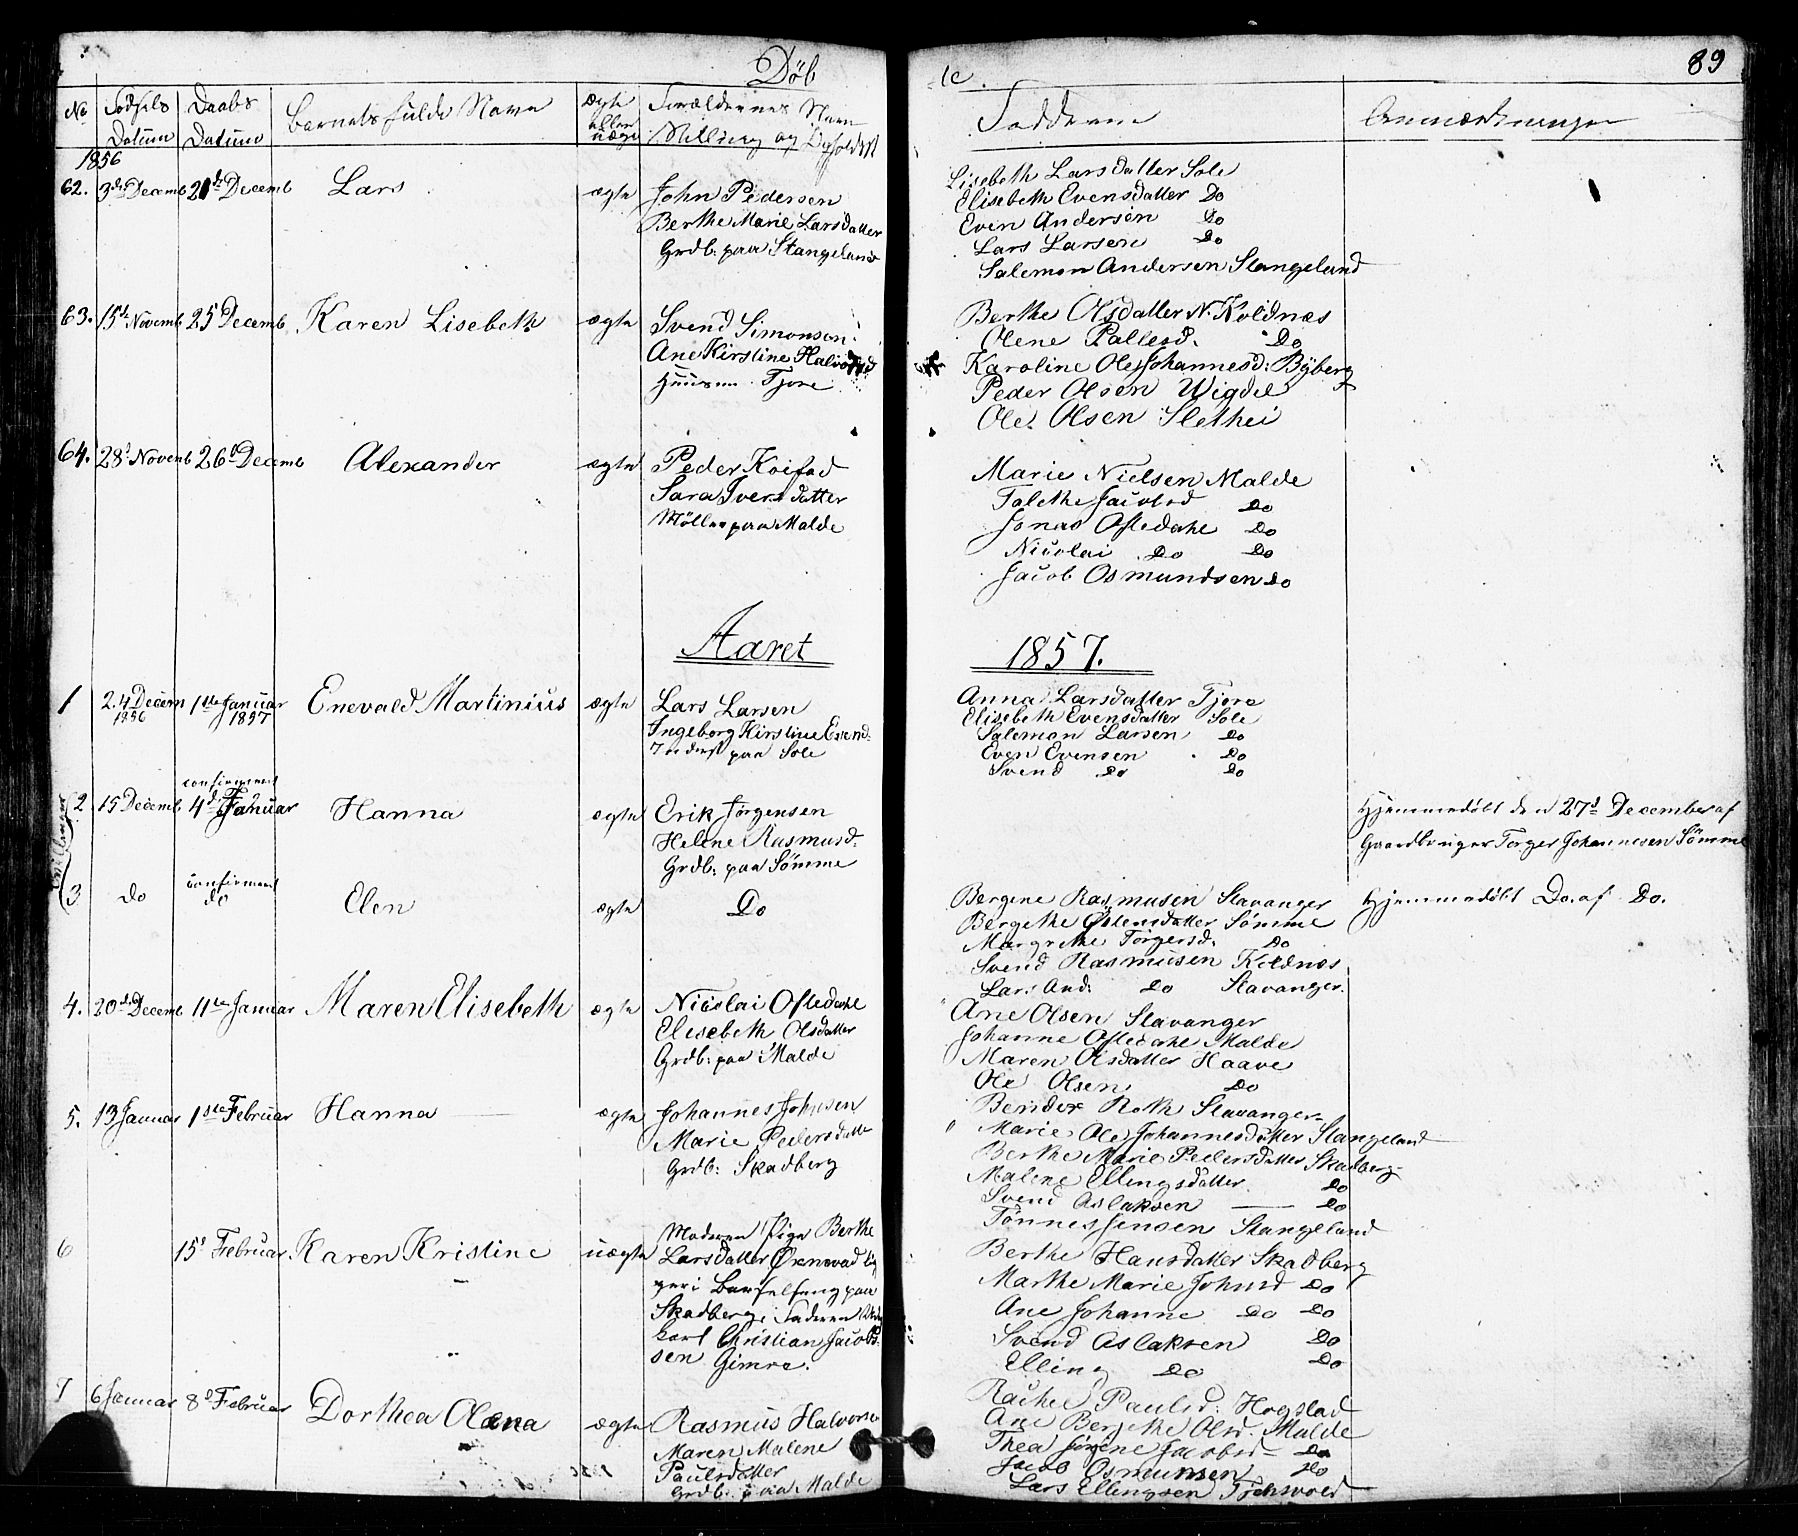 Døb
te.
89
No
Fødsels Datum
Daabs Datum
Barnets fulde Navn
ægte eller uægte
Forældrenes Navn Stilling og Opholdsst
Fadderne
Anmærkninger
1856
62. 3de Decemb 21de Decemb Lars ægte John Pedersen
Berthe Marie Larsdatter
Grdb: paa Stangeland
Lisebeth Larsdatter Sole
Elisebeth Evensdatter Do
Even Andersen Do
Lars Larsen Do
Salemon Andersen Stangeland
63. 15de Novemb 25 Decemb Karen Lisebeth ægte Svend Simonsen
Ane Kirstine Halvorsd
Huusm. Tjore
Berthe Olsdatter N. Kvildnæs
Olene Pallesd. Do
Karoline Ole Johannesd: Byberg
Peder Olsen Wigdel
Ole Olsen Slethei
64. 28d Novemb 26d Decemb Alexander ægte Peder Koifod
Sara Iversdatter
Møller paa Malde
Marie Nielsen Malde
Talethe Jacobsd Do
Jonas Oftedahl Do
Nicolai Do Do
Jacob Osmundsen Do
Aaret 1857.
1 24 Decem 1856 1ste Januar 1857 Enevald Martinius ægte Lars Larsen
Ingeborg Kirstine Evend.
Inderst paa Sole
Anna Larsdatter Tjore
Elisebeth Evensdatter Sole
Salemon Larsen Do
Even Evensen Do
Svend Do Do
Tvillinger
2. 15 Decemb confirmeret 4d Januar Hanna ægte Erik Jørgensen
Helene Rasmusd.
Grdb: paa Sømme
Hjemmedøbt den 27d December af
Gaardbruger Torger Johannesen Sømme
3 do confirmeret do Elen ægte Do
Bergene Rasmusen Stavanger
Bergethe Østensdatter Sømme
Margrethe Torgersd. Do
Svend Rasmusen Kvldnæs
Lars And: Do Stavanger.
Hjemmedøbt Do. af Do.
4. 20de Decemb 11te Januar Maren Elisebeth ægte Nicolai Oftedahl
Elisebeth Olsdatter
Grdb: paa Malde
Ane Olsen Stavanger
Johanne Oftedahl Malde
Maren Olsdatter Haave
Ole Olsen Do
Bendix Roth Stavanger
5. 13 Januar 1ste Februar Hanna ægte Johannes Johnsen
Marie Pedersdatter
Grdb: Skadberg
Marie Ole Johannesdatter Stangeland
Berthe Marie Pedersdatter Skadberg
Malene Ellingsdatter Do
Svend Aslaksen Do
Tønnes Jensen Stangeland
6 15d Februar Karen Kristine uægte Moderen Pige Berthe
Larsdatter Øxnevad lig
ger i Barselseng paa
Skadberg; Faderen Ung
karl Christian Jacob
sen Gimre.
Berthe Hansdatter Skadberg
Marthe Marie Johnsd Do
Ane Johanne Do Do
Svend Aslaksen Do
Elling Do Do
7 6 Januar 8d Februar Dorthea Olæna ægte Rasmus Halvorsen
Maren Malene
Paulsdatter
Grdb: paa Malde
Rachel Paulsd: Hogstad
Ane Bergethe Olsd. Malde
Thea Jørgine Jacobsd Do
Jacob Osmunsen Do
Lars Ellingsen Tjensvold